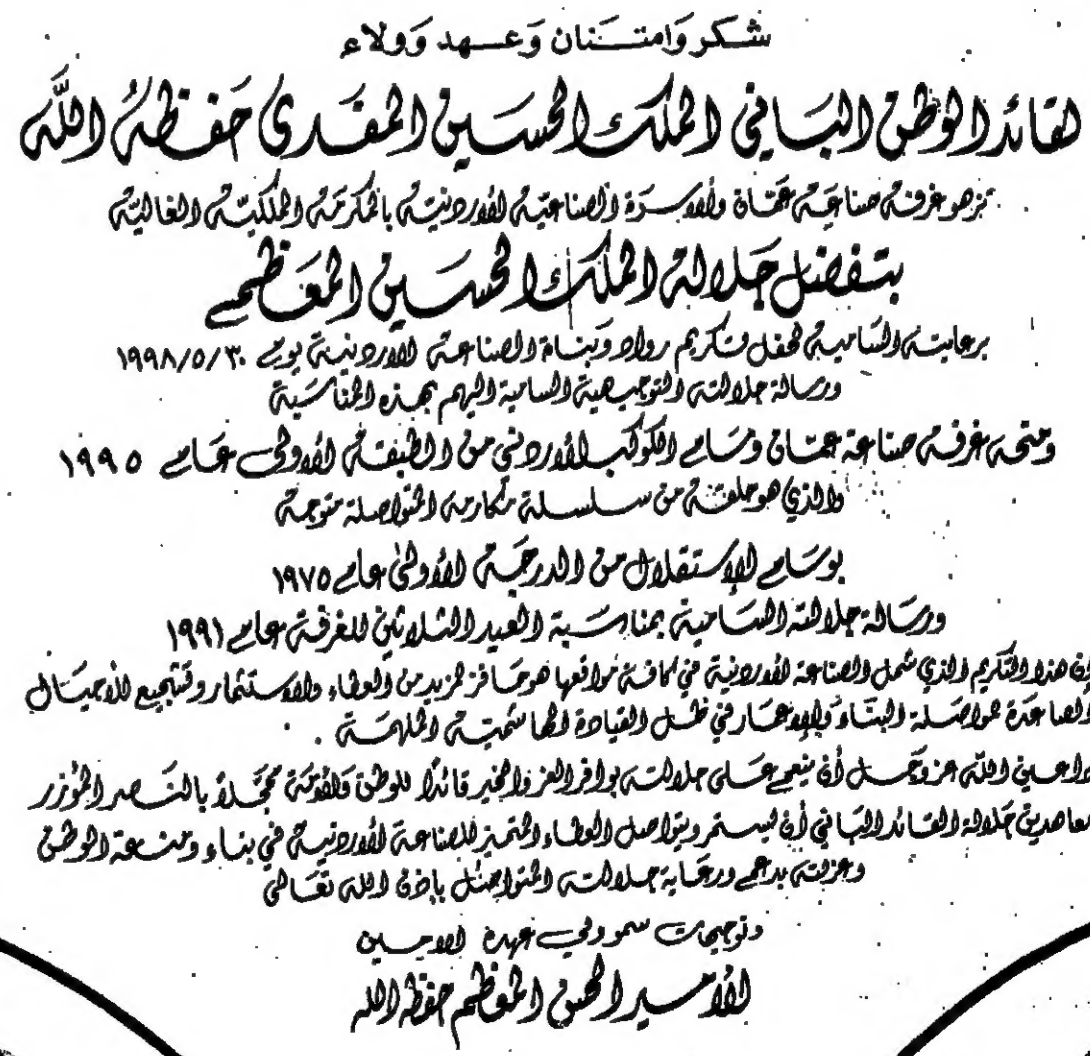 شكر وامتنان وعهد وولاء
لقائد الوطن الباني الملك الحسين المفدى حفظه الله
تزهو غرفة صناعة عمان والاسرة الصناعية الأردنية بالمكرمة الملكية الغالية
بتفضل جلالة الملك الحسين المعظم
برعايته السامية لحفل تكريم رواد وبناة الصناعة الاردنية يوم ١٩٩٨/٥/٣٠
ورسالة جلالته التوجيهية السامية اليهم بهذه المناسبة
ومنحه غرفة صناعة عمان وسام الكوكب الأردني من الطبقة الأولى عام ١٩٩٥
والذي هو حلقة من سلسلة مكارمه المتواصلة متوجة
بوسام الإستقلال من الدرجة الأولى عام ١٩٧٥
ورسالة جلالته السامية بمناسبة العيد الثلاثين للغرفة عام ١٩٩١
إن هذا التكريم الذي شمل الصناعة الأردنية في كافة مواقعها هو حافز لمزيد من العطاء والاستثمار وتشجيع للاجيال
الصاعدة لمواصلة البناء والإعمار في ظل القيادة الهاشمية الملهمة .
داعين الله عز وجل أن ينعم على جلالته بوافر العز والخير قائدًا للوطن والأمة مجللاً بالنصر المؤزر
معاهدين جلالة القائد الباني أن يستمر ويتواصل العطاء المتميز للصناعة الأردنية في بناء ومنعة الوطن
وعزته بدعم ورعاية جلالته المتواصل بإذن الله تعالى
وتوجيهات سمو ولي عهده الامين
الأمير الحسن المعظم حفظه الله